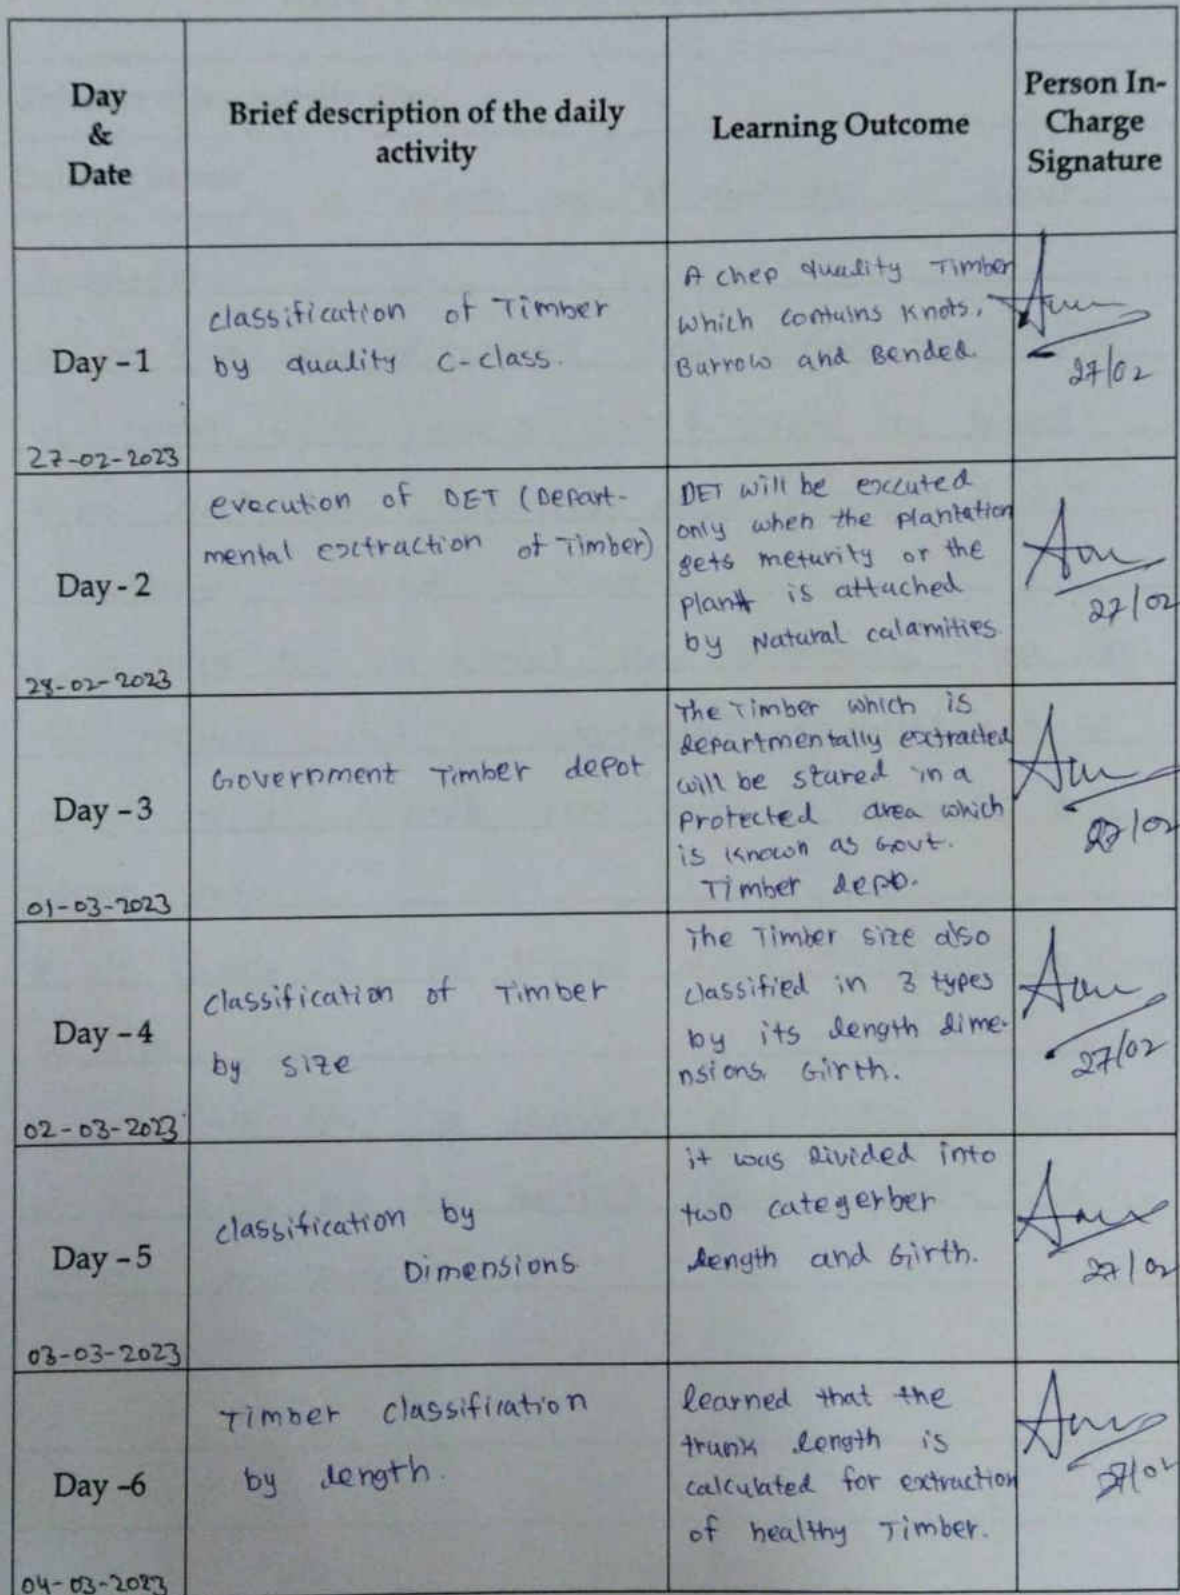 Day
&
Date
Brief description of the daily
activity
Learning Outcome
Person In-
Charge
Signature
Day - 1
27-02-2023
classification of Timber
by quality C-class.
A chep quality Timber
which contains Knots,
Burrow and Bended.
27/02
Day - 2
28-02-2023
execution of DET (Depart-
mental extraction of Timber)
DET will be excuted
only when the plantation
gets meturity or the
plant is attached
by Natural calamities.
27/02
Day - 3
01-03-2023
Government Timber depot
The Timber which is
departmentally extracted
will be stured in a
protected area which
is known as Govt.
Timber depo.
27/02
Day - 4
02-03-2023
classification of Timber
by size
The Timber size also
classified in 3 types
by its length dime-
nsions. Girth.
27/02
Day - 5
03-03-2023
classification by
Dimensions
it was divided into
two categerber
length and Girth.
27/02
Day -6
04-03-2023
Timber classification
by length.
learned that the
trunk length is
calculated for extraction
of healthy Timber.
27/02